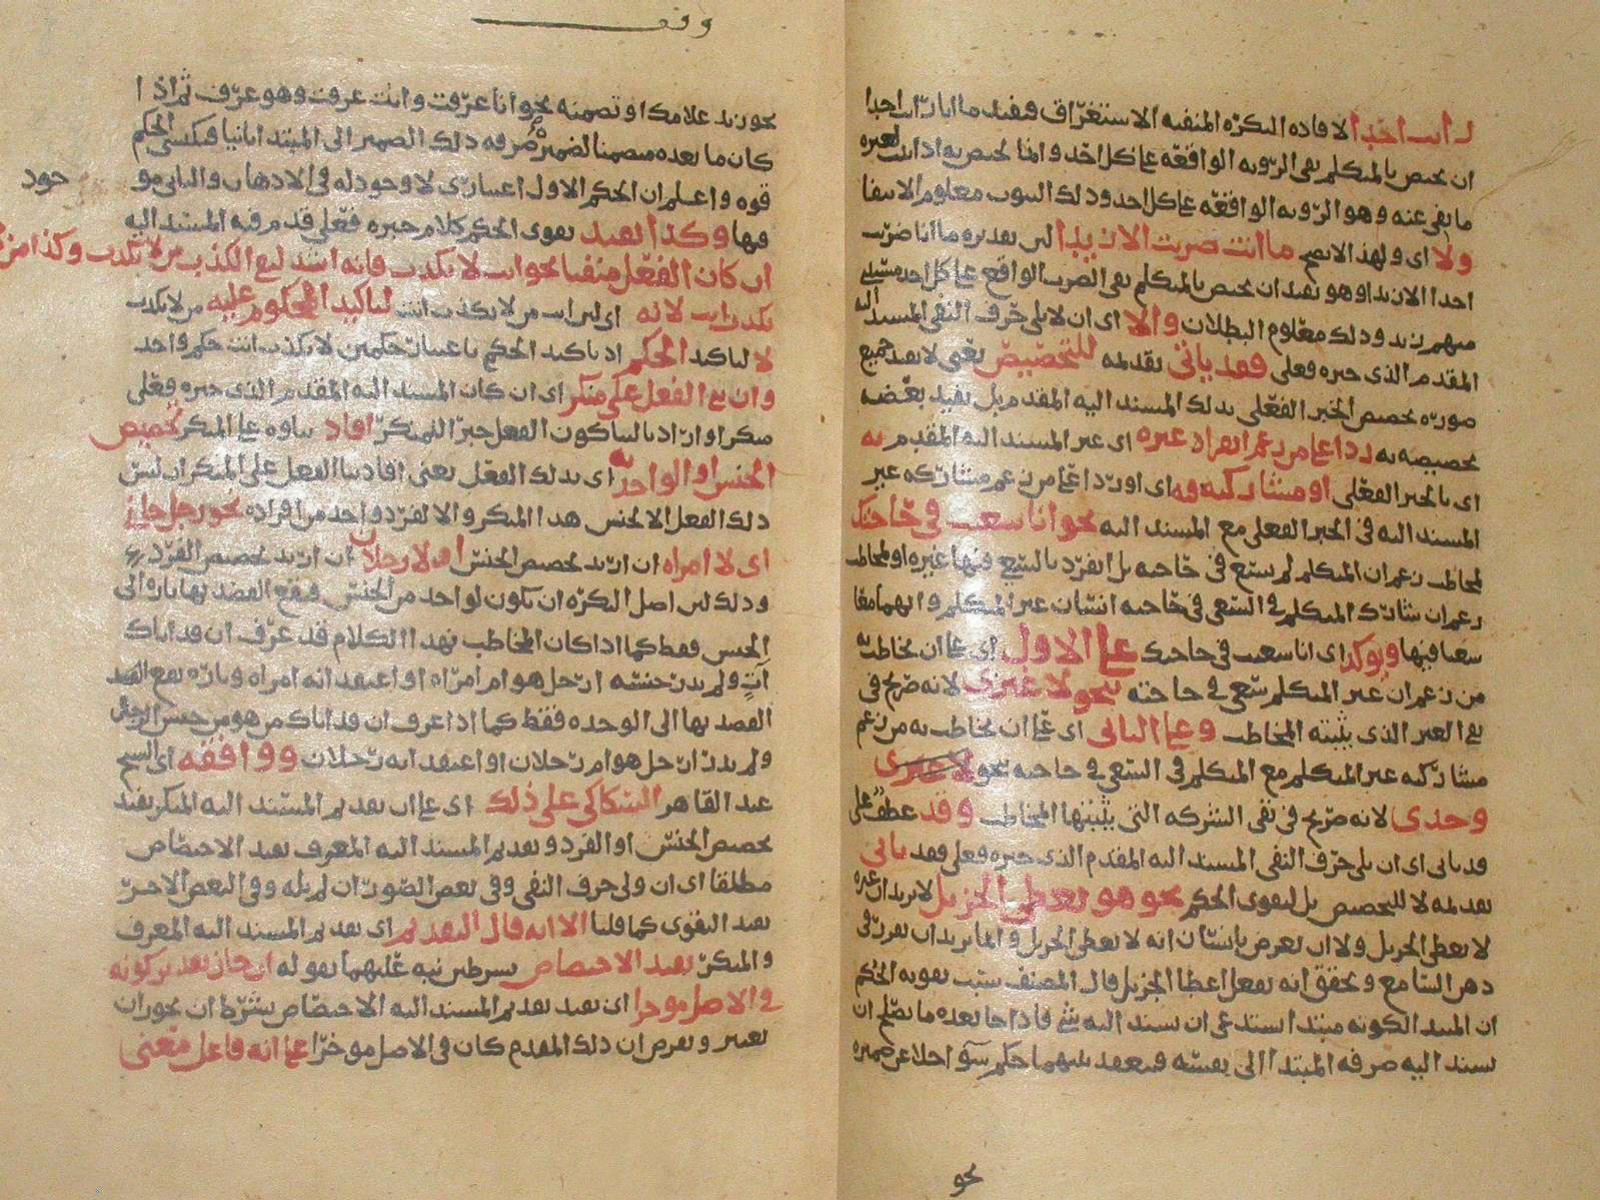 رايت احدا لافاده النكره المنفيه الاستغراق فيفيد ما انا رايت احدا
ان يختص بالمتكلم نفي الرويه الواقعه على كل احد وانما يختص به اذا ثبت لغيره
ما نفي عنه وهو الرويه الواقعه على كل احد وذلك الثبوت معلوم الانتفا
ولا اي ولهذا لا يصح ما انت ضربت الا زيدا لان تقديره ما انا ضربت
احدا الا زيدا وهو يفيد ان يختص بالمتكلم نفي الضرب الواقع على كل احد
منهم زيد وذلك معلوم البطلان والا اي ان لا يلي حرف النفي المسند اليه
المقدم الذي خبره فعلي فقد ياتي تقديمه للتخصيص يعني لا يفيد جميع
صوره تخصيص الخبر الفعلي بذلك المسند اليه المقدم بل يفيد بعضه
تخصيصه به ردا على من زعم انفراد غيره اي غير المسند اليه المقدم به
اي بالخبر الفعلي او مشاركته فيه اي او ردا على من زعم مشاركه غير
المسند اليه في الخبر الفعلي مع المسند اليه نحو انا سعيت في حاجتك
لمخاطب زعم ان المتكلم لم يسع في حاجته بل انفرد بالسعي فيها غيره او لمخاطب
زعم ان شارك المتكلم في السعي في حاجته انسان غير المتكلم وانهما معا
سعيا فيها ويوكد اي انا سعيت في حاجتك على الاول اي على ان يخاطب به
من زعم ان غير المتكلم سعى في حاجته بنحو لا غيري لانه صريح في
نفي الغير الذي يثبته المخاطب وعلى الثاني اي على ان يخاطب به من زعم
مشاركه غير المتكلم مع المتكلم في السعي في حاجته بنحو لا غيري
وحدي لانه صريح في نفي الشركه التي يثبتها المخاطب وقد عطف على
قد ياتي اي ان يلي حرف النفي المسند اليه المقدم الذي خبره فعلي فقد ياتي
تقديمه لا للتخصيص بل لتقوي الحكم نحو هو يعطي الجزيل لا يريد ان غيره
لا يعطي الجزيل ولا ان يعرض بانسان انه لا يعطي الجزيل وانما يريد ان يقرر في
ذهن السامع ويحقق انه يفعل اعطا الجزيل قال المصنف سبب تقويه الحكم
ان المبتدا لكونه مبتدا يستدعي ان يسند اليه شي فاذا جا بعده ما يصلح ان
يسند اليه صرفه المبتدا الى نفسه فينعقد بينهما حكم سوا خلا عن ضميره
نحو
وقف
نحو زيد غلامك او تضمنه نحو انا عرفت وانت عرفت وهو عرف ثم اذا
كان ما بعده متضمنا لضميره صرفه ذلك الضمير الى المبتدا ثانيا فيكتسي الحكم
قوه واعلم ان الحكم الاول اعتباري لا وجود له في الاذهان والثاني مو
جود
فيها وكذا يفيد تقوي الحكم كلام خبره فعلي قدم فيه المسند اليه
ان كان الفعل منفيا نحو انت لا تكذب فانه اشد لنفي الكذب من لا تكذب وكذا من لا
تكذب انت لانه اي لان انت من لا تكذب انت لتاكيد المحكوم عليه من لا تكذب
لا لتاكيد الحكم اذ تاكيد الحكم باعتبار حكمين لا تكذب انت حكم واحد
وان بني الفعل على منكر اي ان كان المسند اليه المقدم الذي خبره فعلي
منكرا واراد بالبنا كون الفعل خبرا للمنكر افاد بناوه على المنكر تخصيص
الجنس او الواحد به اي بذلك الفعل يعني افاد بنا الفعل على المنكر ان ليس
ذلك الفعل الا لجنس هذا المنكر والا لفرد واحد من افراده نحو رجل جاني
اي لا امراه ان اريد تخصيص الجنس او لا رجلان ان اريد تخصيص الفرد
وذلك لان اصل النكره ان تكون لواحد من الجنس فيقع القصد بها تاره الى
الجنس فقط كما اذا كان المخاطب بهذا الكلام قد عرف ان قد اتاك
آت ولم يدر جنسه ارجل هو ام امراه او اعتقد انه امراه وتاره يقع القصد
القصد بها الى الوحده فقط كما اذا عرف ان قد اتاك من هو من جنس الرجل
ولم يدر ارجل هو ام رجلان او اعتقد انه رجلان ووافقه اي الشيخ
عبد القاهر السكاكي على ذلك اي على ان تقديم المسند اليه المنكر يفيد
تخصيص الجنس او الفرد وتقديم المسند اليه المعرف يفيد الاختصاص
مطلقا اي ان ولي حرف النفي وفي بعض الصور ان لم يله وفي البعض الاخر
يفيد التقوي كما قلنا الا انه قال التقديم اي تقديم المسند اليه المعرف
والمنكر يفيد الاختصاص بشرطين نبه عليهما بقوله ان جاز تقدير كونه
في الاصل موخرا اي يفيد تقديم المسند اليه الاختصاص بشرط ان يجوز ان
يعتبر ويفرض ان ذلك المقدم كان في الاصل موخرا على انه فاعل معنى